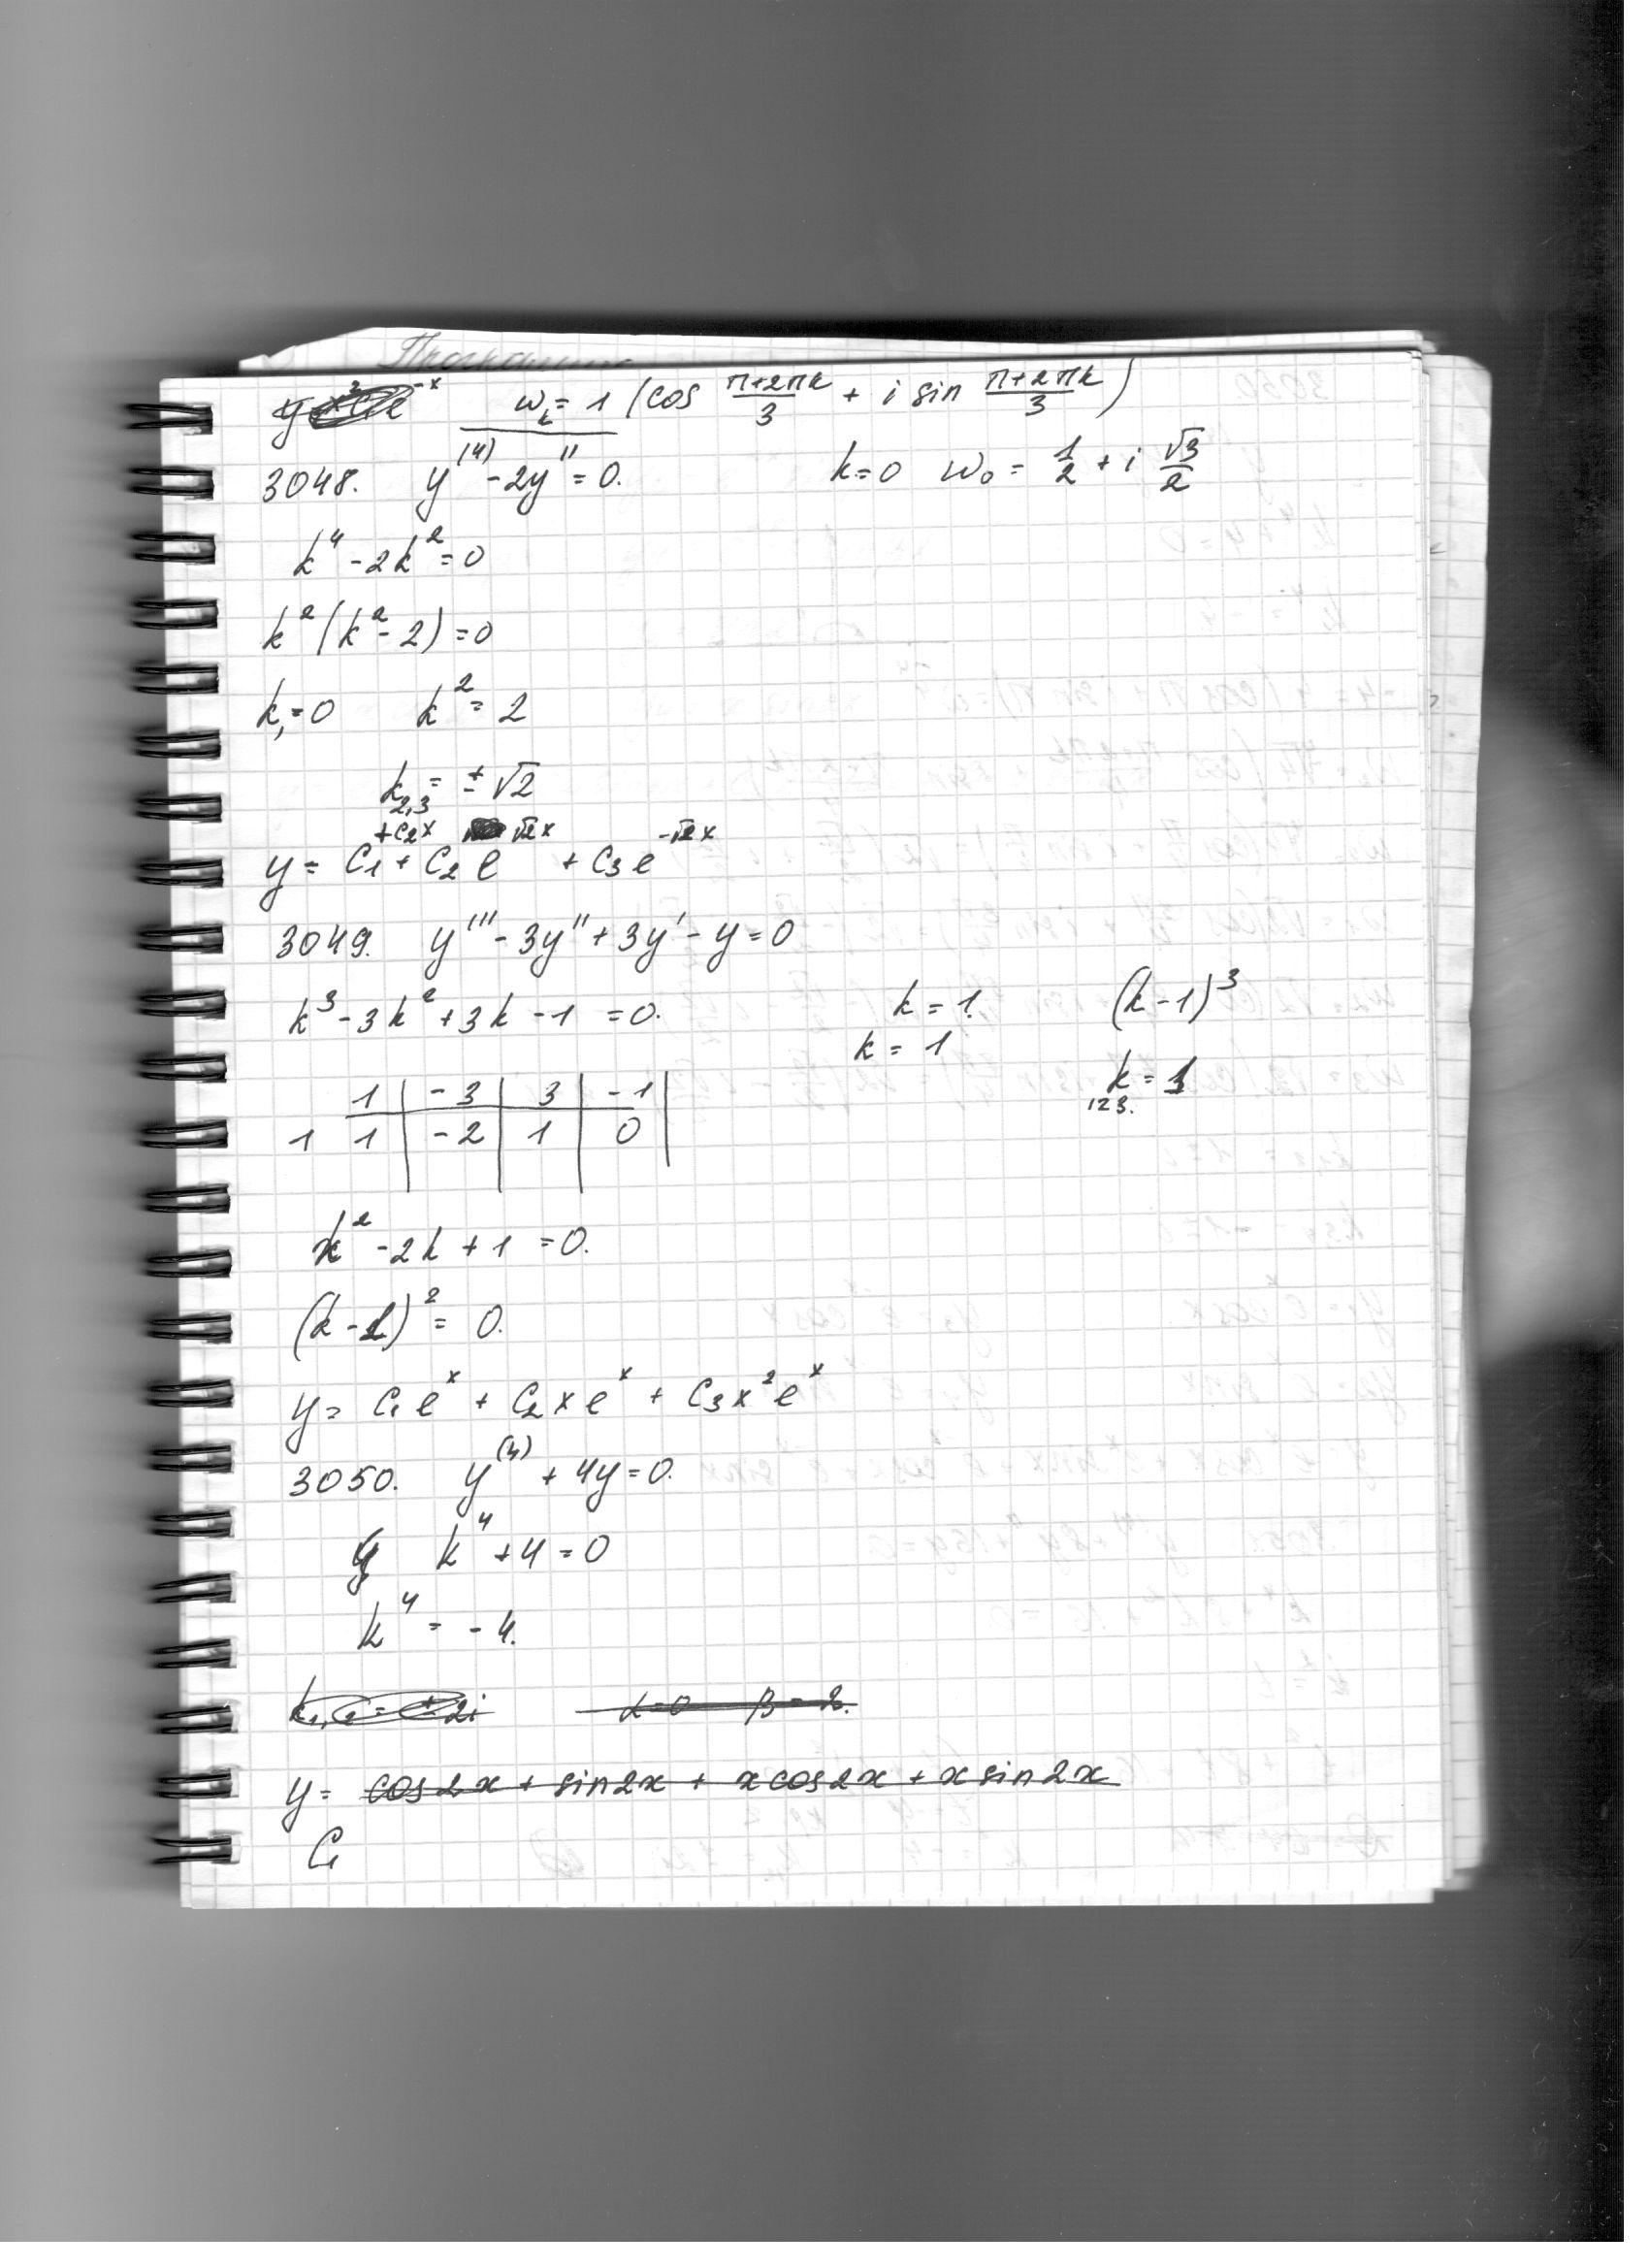 Программа
y x² e^-x   w_k = 1 (cos (π+2πk)/3 + i sin (π+2πk)/3)
3048. y^(4) - 2y'' = 0.   k=0 w₀ = 1/2 + i √3/2
k⁴ - 2k² = 0
k² (k² - 2) = 0
k₁ = 0   k² = 2
k₂,₃ = ± √2
+ C₂x
y = C₁ + C₂ e^√2x + C₃ e^-√2x
3049. y''' - 3y'' + 3y' - y = 0
k³ - 3k² + 3k - 1 = 0.   k = 1.   (k-1)³
k = 1   k₁₂₃. = 1
1 | -3 | 3 | -1 |
1 1 | -2 | 1 | 0
k² - 2k + 1 = 0.
(k - 1)² = 0.
y = C₁ e^x + C₂ x e^x + C₃ x² e^x
3050. y^(4) + 4y = 0.
k⁴ + 4 = 0
k⁴ = - 4.
k₁,₂ = ± 2i   α = 0 β = 2.
y = cos 2x + sin 2x + x cos 2x + x sin 2x
C₁